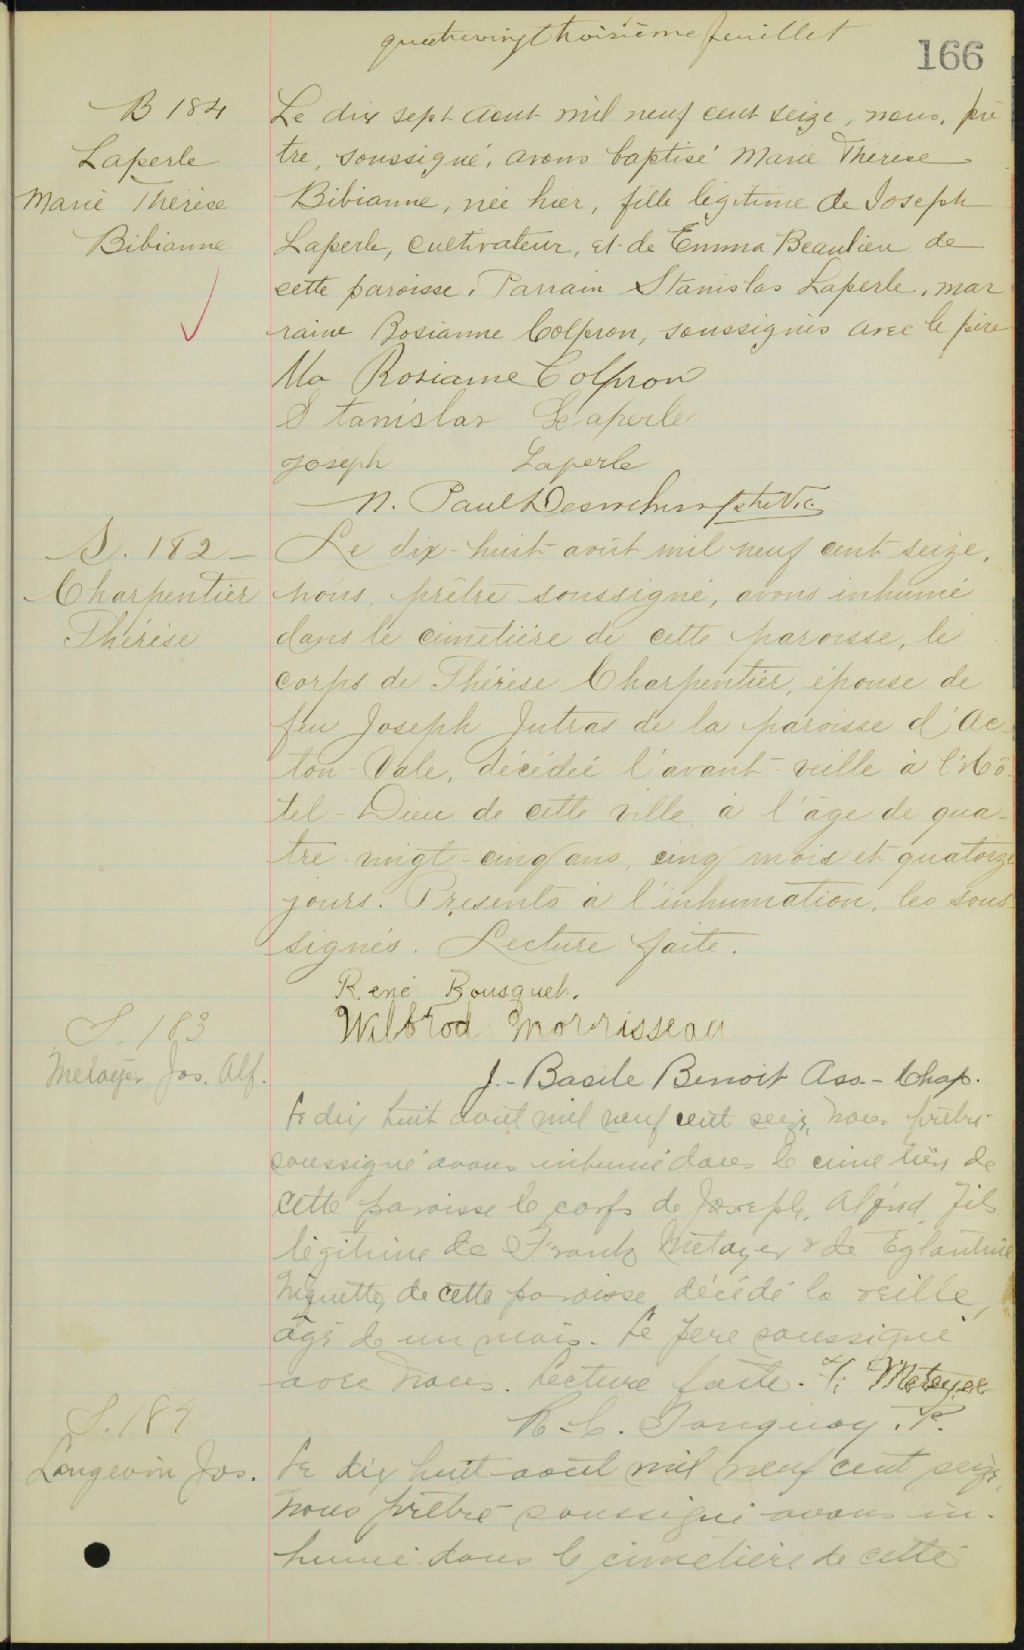 quatrevingttroisième feuillet
166
B 184
Laperle
Marie Thérèse
Bibianne
Le dix sept aout mil neuf cent seize, nous, prê
tre, soussigné, avons baptisé Marie Thérèse
Bibianne, née hier, fille légitime de Joseph
Laperle, cultivateur, et de Emma Beaulieu de
cette paroisse. Parrain Stanislas Laperle, mar
raine Rosianne Colpron, soussignés avec le père
Ma Rosianne Colpron
Stanislas Laperle
Joseph Laperle
N. Paul Desrochers ptre Vic
S. 182 -
Charpentier
Thérèse
Le dix-huit août mil neuf cent seize,
nous, prêtre soussigné, avons inhumé
dans le cimetière de cette paroisse, le
corps de Thérèse Charpentier, épouse de
feu Joseph Jutras de la paroisse d'Ac-
ton-Vale, décédée l'avant-veille à l'Hô-
tel-Dieu de cette ville à l'âge de qua-
tre-vingt-cinq ans, cinq mois et quatorze
jours. Présents à l'inhumation, les sous-
signés. Lecture faite.
René Bousquet.
Wilbrod Morrisseau
J.-Basile Benoit Ass.-Chap.
S. 183
Metayer Jos. Alf.
Le dix huit aout mil neuf cent seize, nous prêtre
soussigné avons inhumé dans le cimetière de
cette paroisse le corps de Joseph, Alfred fils
légitime de Frank Métayer & de Eglantine
de cette paroisse décédé la veille,
âgé de un mois. Le père soussigné
avec nous. Lecture faite. F. Metayer
H.-C. Tanguay. P.
S. 184
Langevin Jos.
Le dix huit aout mil neuf cent seize,
nous prêtre soussigné avons in-
humé dans le cimetière de cette